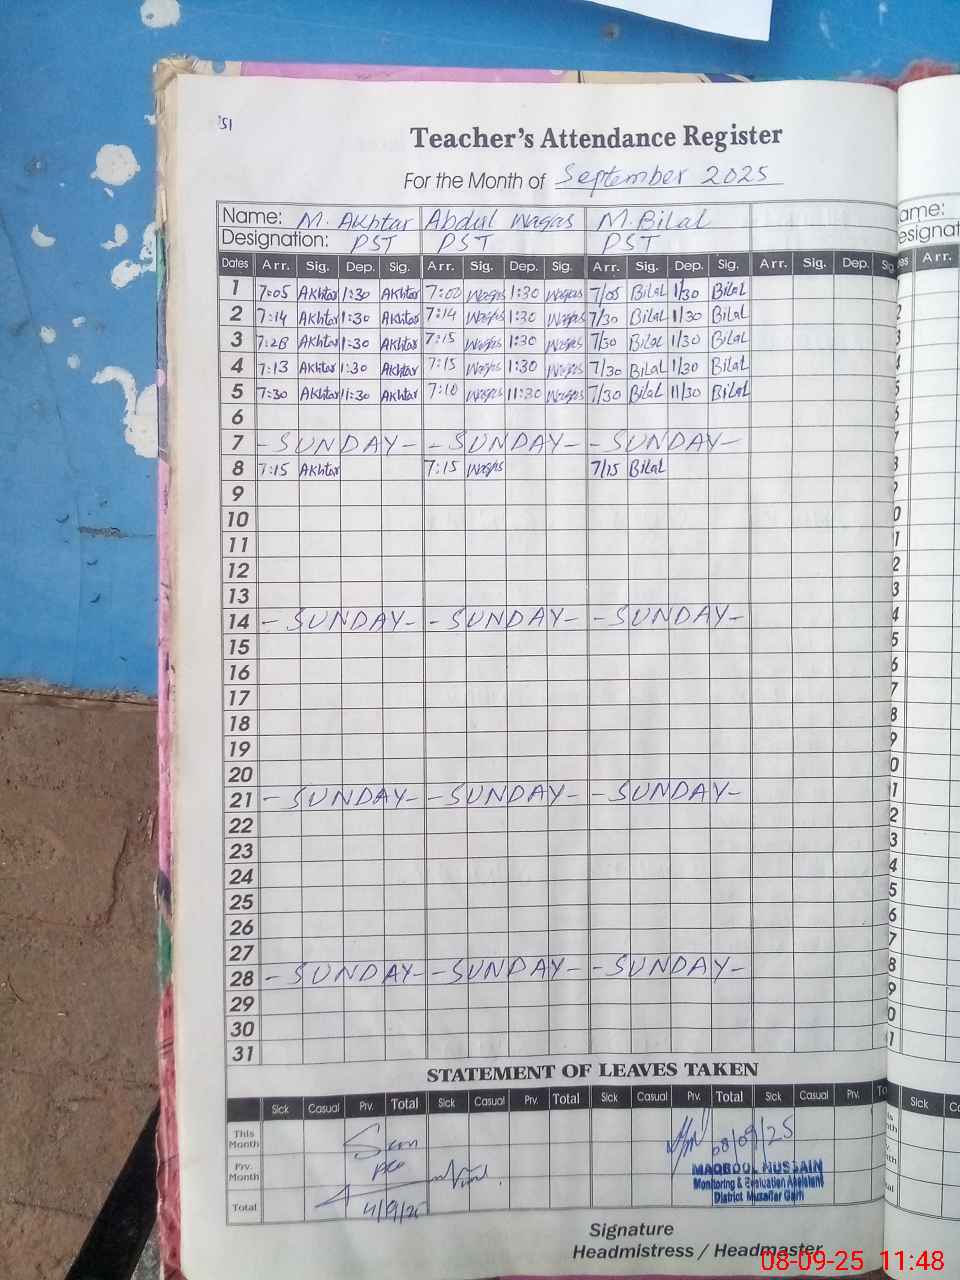 51
Teacher's Attendance Register
For the Month of September 2025
Name: M. Akhtar Abdul Waqas M. Bilal
Designation: PST PST PST
Dates Arr. Sig. Dep. Sig. Arr. Sig. Dep. Sig. Arr. Sig. Dep. Sig. Arr. Sig. Dep. Sig
1 7:05 Akhtar 1:30 Akhtar 7:00 Waqas 1:30 Waqas 7/05 Bilal 1/30 Bilal
2 7:14 Akhtar 1:30 Akhtar 7:14 Waqas 1:30 Waqas 7/30 Bilal 1/30 Bilal
3 7:28 Akhtar 1:30 Akhtar 7:15 Waqas 1:30 Waqas 7/30 Bilal 1/30 Bilal
4 7:13 Akhtar 1:30 Akhtar 7:15 Waqas 1:30 Waqas 7/30 Bilal 1/30 Bilal
5 7:30 Akhtar 11:30 Akhtar 7:10 Waqas 11:30 Waqas 7/30 Bilal 11/30 Bilal
6
7 - SUNDAY - - SUNDAY - - SUNDAY -
8 7:15 Akhtar 7:15 Waqas 7/15 Bilal
9
10
11
12
13
14 - SUNDAY - - SUNDAY - - SUNDAY -
15
16
17
18
19
20
21 - SUNDAY - - SUNDAY - - SUNDAY -
22
23
24
25
26
27
28 - SUNDAY - - SUNDAY - - SUNDAY -
29
30
31
STATEMENT OF LEAVES TAKEN
Sick Casual Prv. Total Sick Casual Prv. Total Sick Casual Prv. Total Sick Casual Prv. To
This Month
08/09/25
Prv. Month
MAQBOOL HUSSAIN
Monitoring & Evaluation Assistant
District Muzaffar Garh
Total 4/9/25
Signature
Headmistress / Headmaster
08-09-25 11:48
ame:
esignat
Arr.
Sick